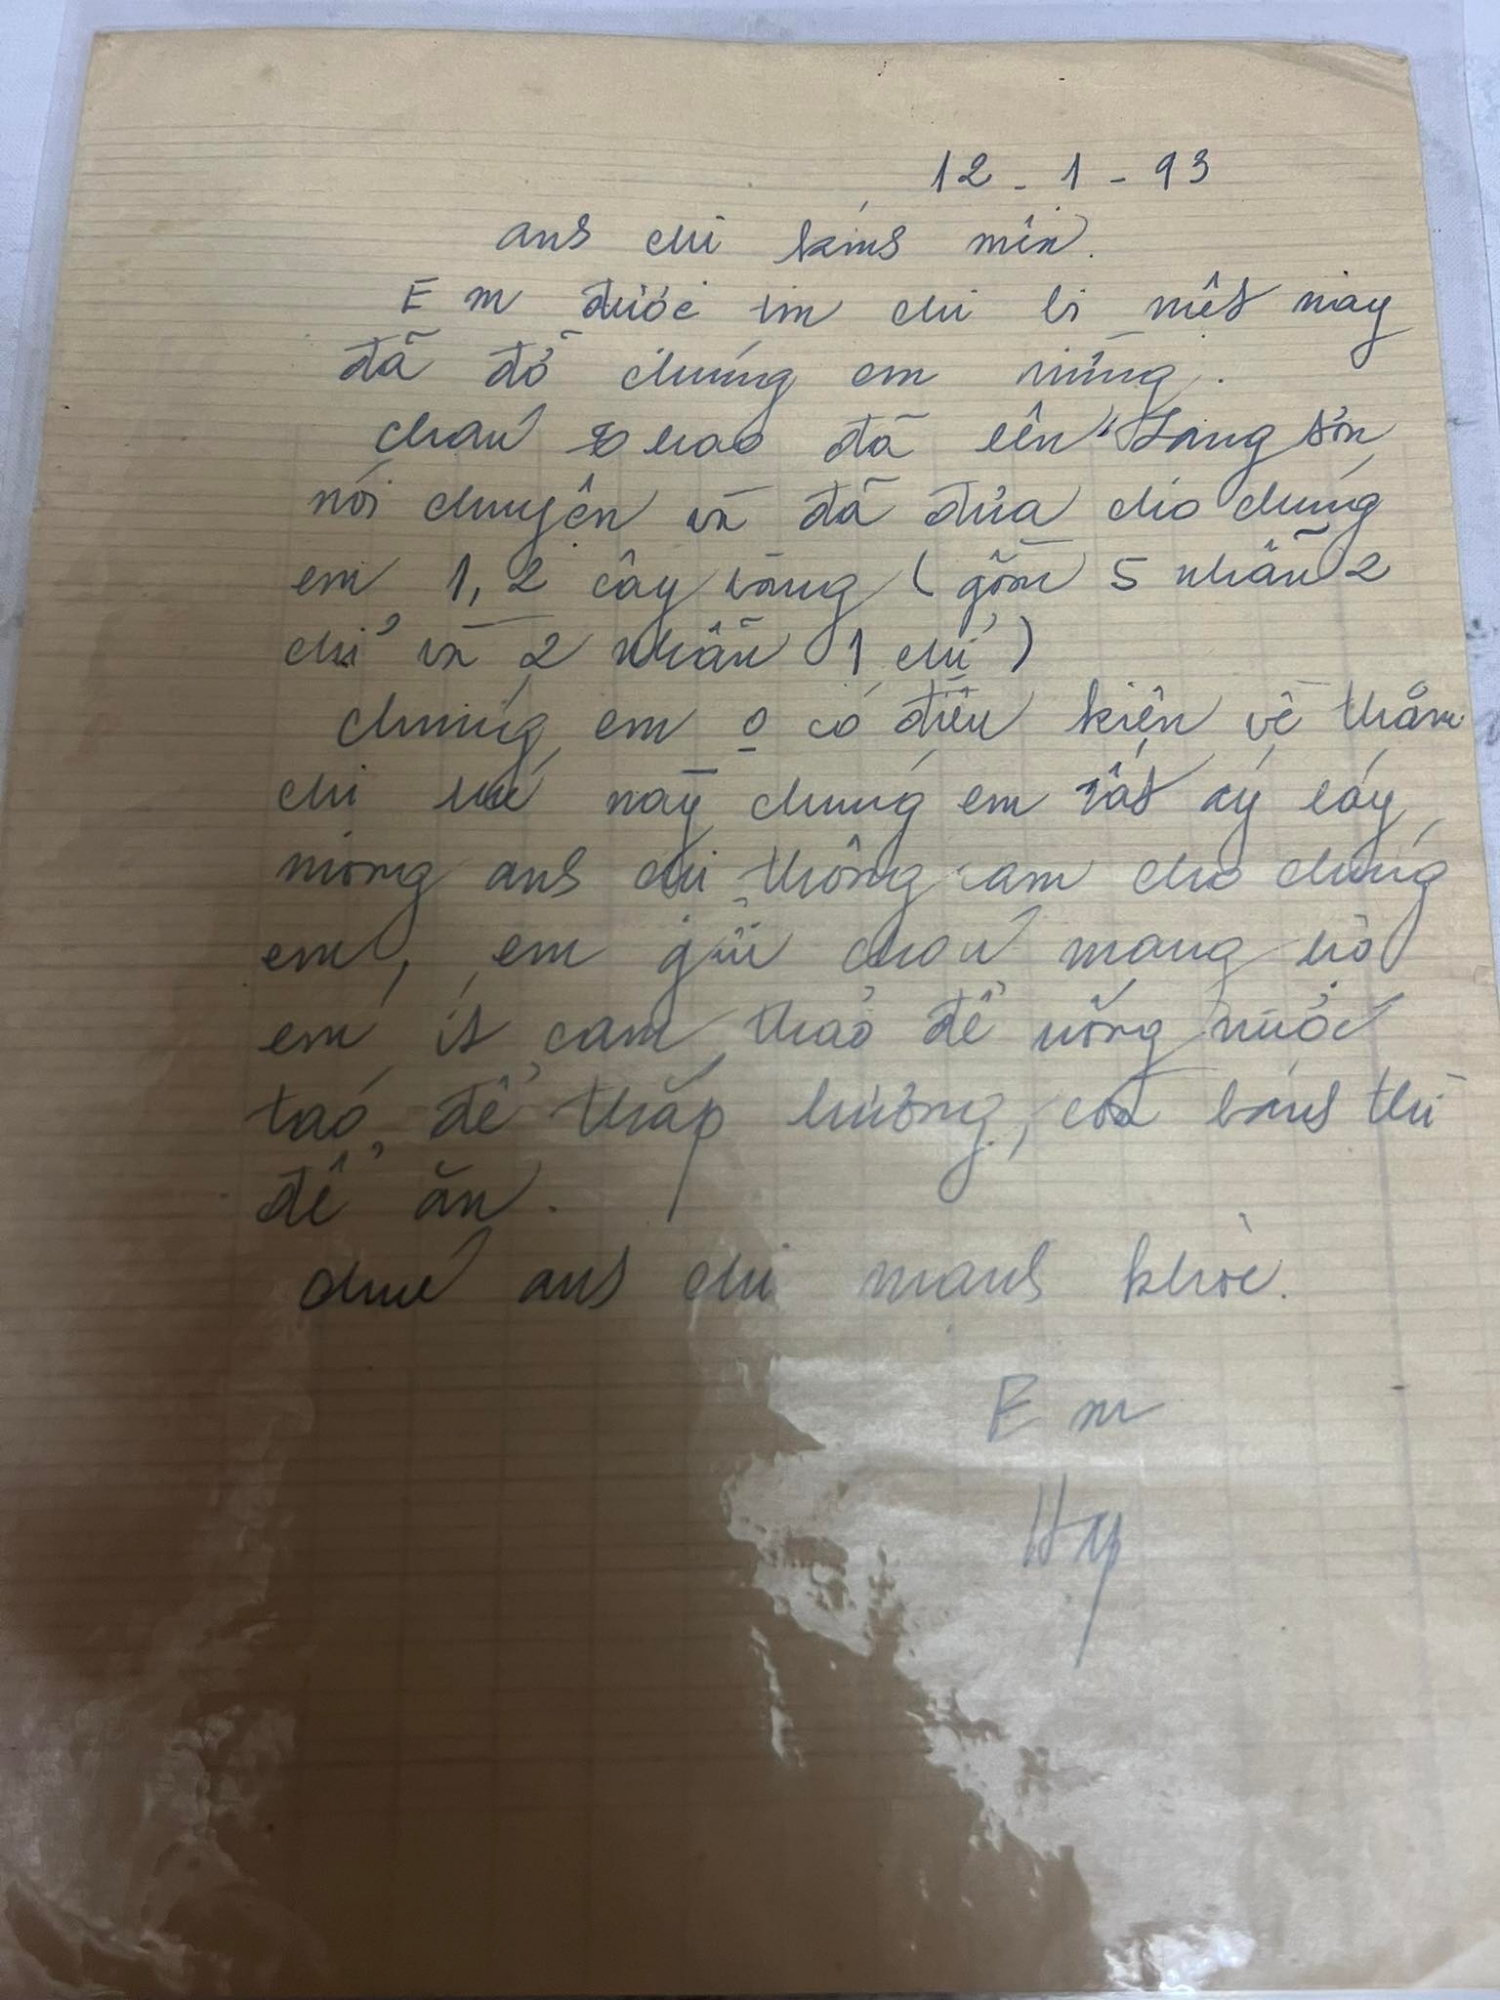 12 - 1 - 93
anh chị kính mến.
Em được tin chị bị mệt nay
đã đỡ chúng em mừng.
cháu Thao đã lên Lạng Sơn
nói chuyện và đã đưa cho chúng
em 1,2 cây vàng (gồm 5 nhẫn 2
chỉ và 2 nhẫn 1 chỉ)
chúng em o có điều kiện về thăm
chị lúc này chúng em rất áy láy
mong anh chị thông cảm cho chúng
em, em gửi cháu mang hộ
em ít cam thảo để uống nước
táo để thắp hương, còn bánh thì
để ăn.
chúc anh chị mạnh khỏe.
Em